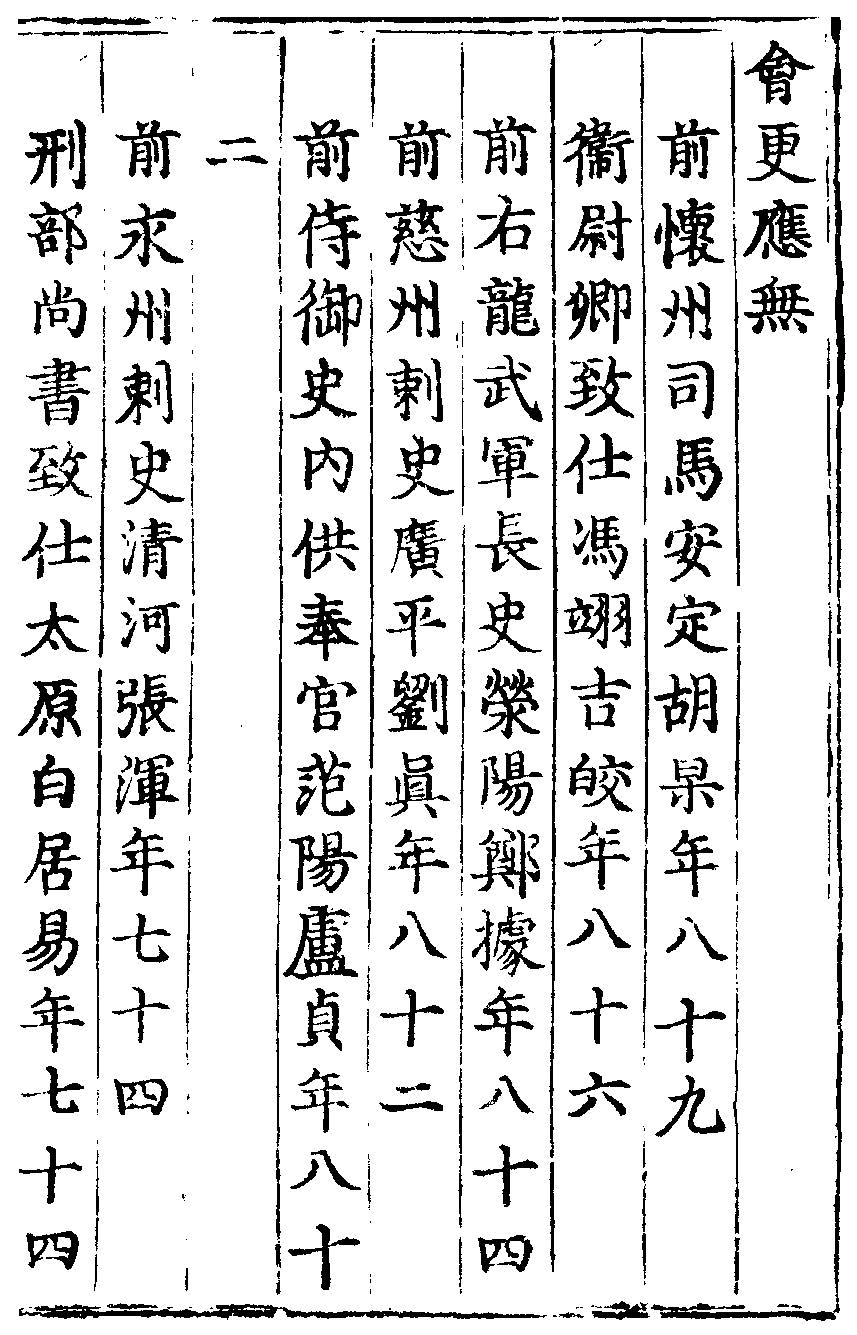 會更應無
前懷州司馬安定胡杲年八十九
衞尉卿致仕馮翊吉皎年八十六
前右龍武軍長史滎陽鄭據年八十四
前慈州刺史廣平劉眞年八十二
前侍御史内供奉官范陽盧貞年八十
二
前永州刺史清河張渾年七十四
刑部尚書致仕太原白居易年七十四